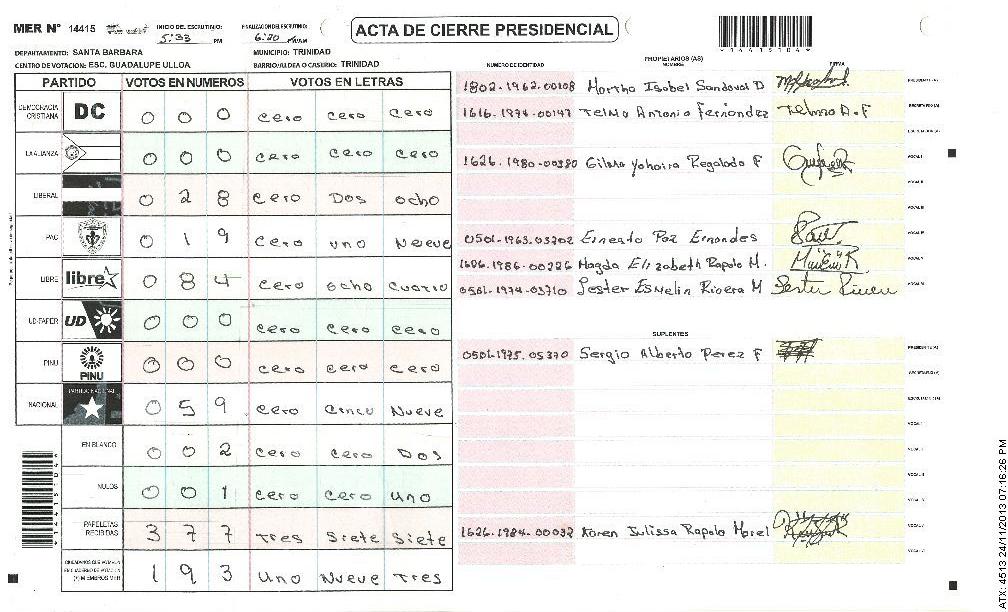 MER N° 14415 INICIO DEL ESCRUTINIO: 5:33 PM FINALIZACION ESCRUTINIO: 6:20 ACTA DE CIERRE PRESIDENCIAL
DEPARTAMENTO: SANTA BARBARA MUNICIPIO: TRINIDAD
CENTRO DE VOTACION: ESC. GUADALUPE ULLOA BARRIO/ALDEA O CASERIO: TRINIDAD
PARTIDO VOTOS EN NUMEROS VOTOS EN LETRAS
DEMOCRACIA CRISTIANA DC 0 0 0 cero cero cero
LA ALIANZA 0 0 0 cero cero cero
LIBERAL 0 2 8 cero Dos ocho
PAC 0 1 9 cero uno Nueve
LIBRE libre 0 8 4 cero ocho cuatro
UD-FAPER UD 0 0 0 cero cero cero
PINU PINU 0 0 0 cero cero cero
NACIONAL PARTIDO NACIONAL 0 5 9 cero cinco Nueve
EN BLANCO 0 0 2 cero cero Dos
NULOS 0 0 1 cero cero uno
PAPELETAS RECIBIDAS 3 7 7 Tres Siete Siete
1 9 3 uno Nueve Tres
PROPIETARIOS (AS)
NUMERO DE IDENTIDAD NOMBRE FIRMA
1802-1962-00108 Martha Isabel Sandoval D
1616-1974-00147 Telma Antonia Fernandez Telma A.F
1626-1980-00380 Gilma Yohaira Regalado F
0501-1963-03202 Ernesto Paz Ernandes
1606-1986-00226 Magda Elizabeth Rapalo M.
0501-1974-03710 Lester Esmelin Rivera M Lester Rivera
SUPLENTES
0501-1975-05370 Sergio Alberto Perez F
1626-1984-00032 Karen Julissa Rapalo Morel
ATX: 4513 24/11/2013 07:16:26 PM